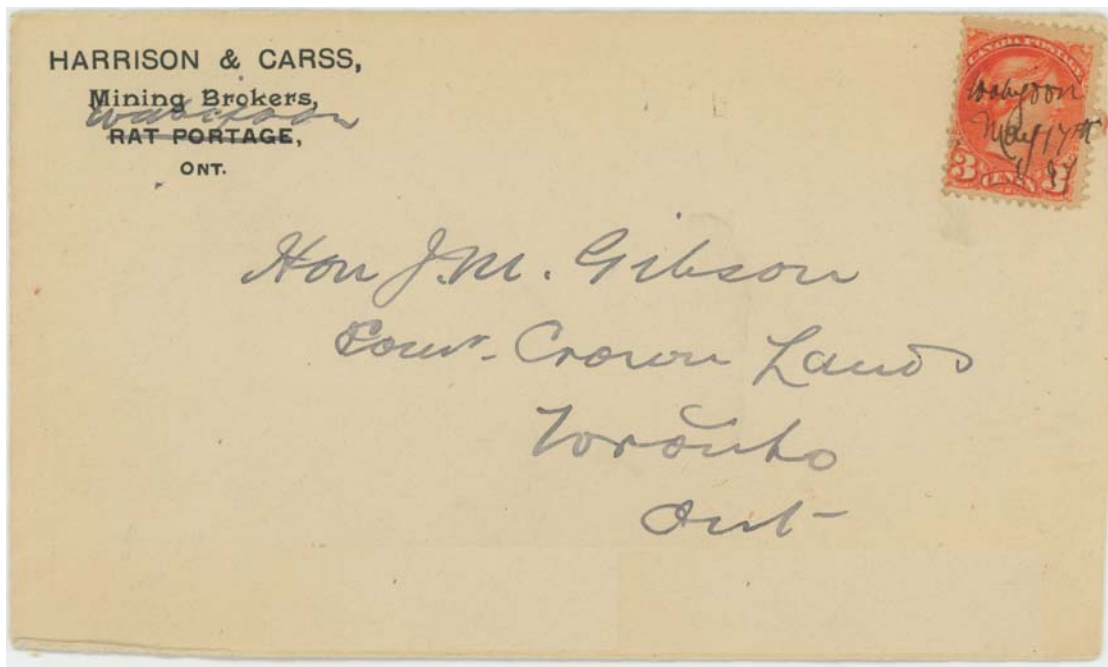 HARRISON & CARSS,
Mining Brokers,
Wabigoon
RAT PORTAGE,
ONT.
CANADA POSTAGE
Wabigoon
May 17th
97
3 CENTS 3
Hon J.M. Gibson
Comr. Crown Lands
Toronto
Ont